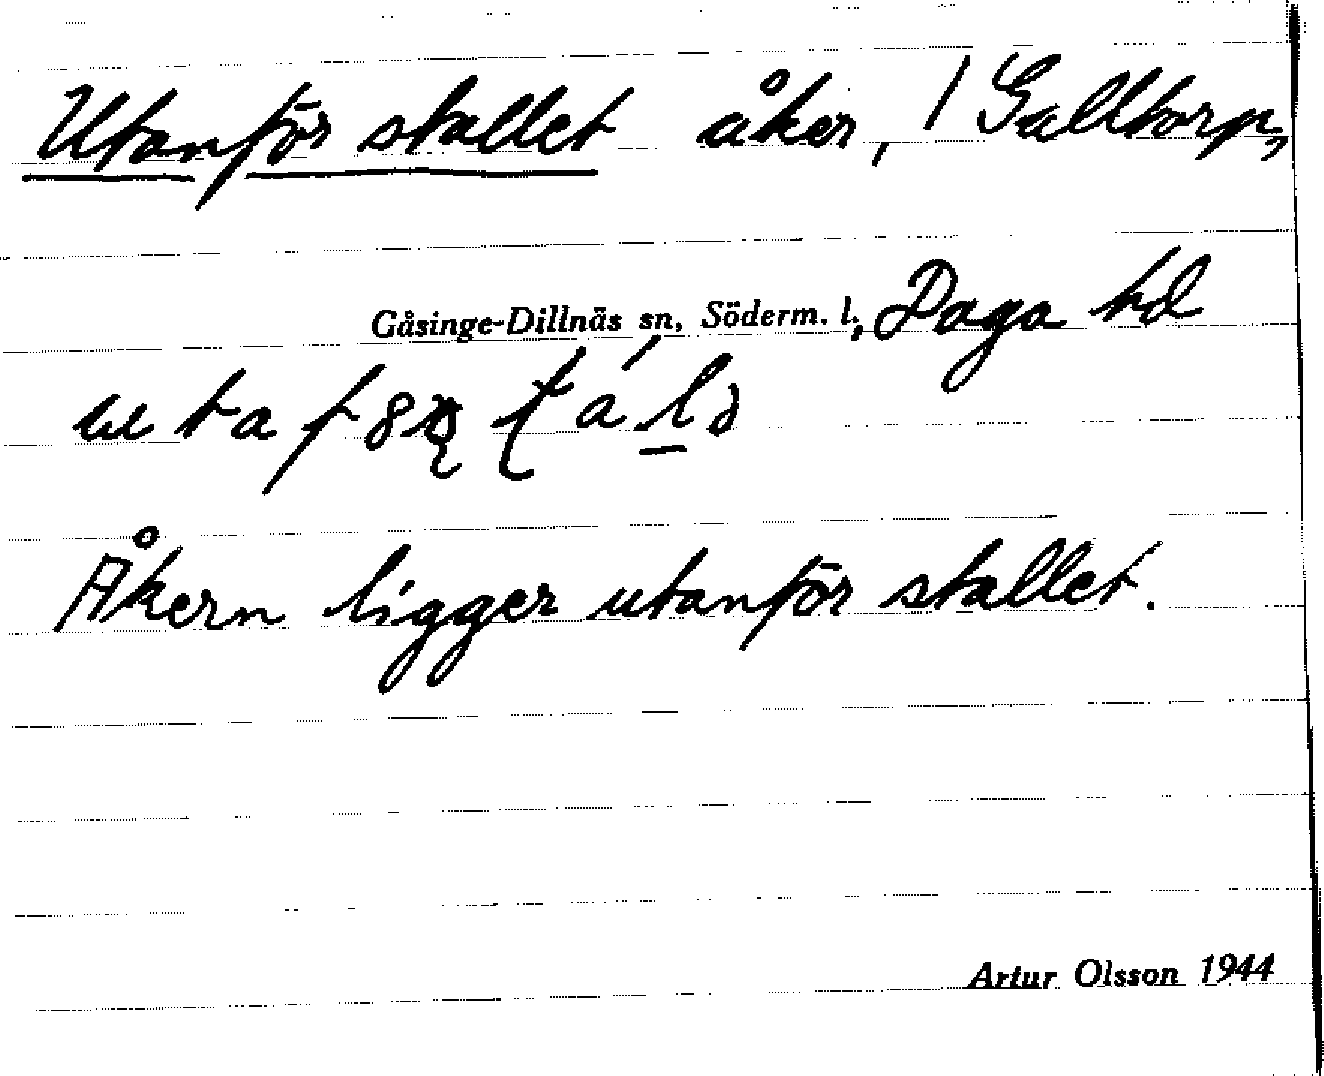 Utanför stallet åker, / Galltorp,
Gåsinge-Dillnäs sn, Söderm. l., Daga hd
Åkern ligger utanför stallet.
Artur Olsson 1944